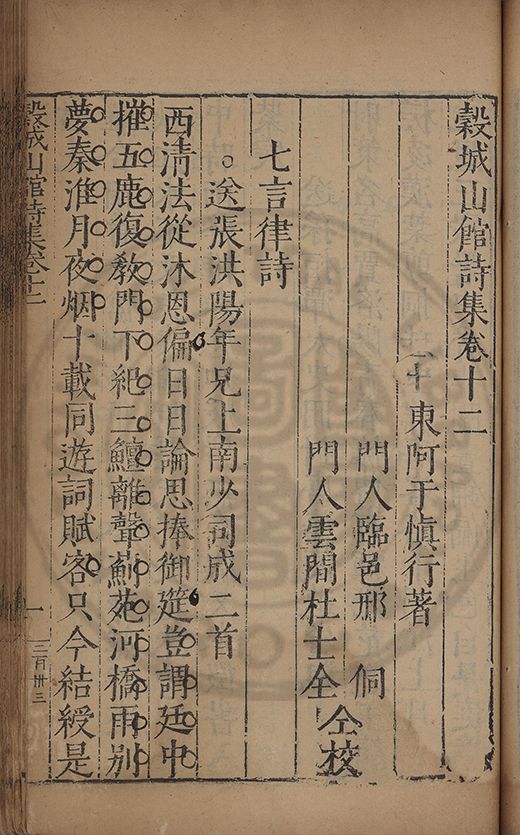 穀城山館詩集卷十二
東阿于慎行著
門人臨邑邢侗
門人雲間杜士全仝校
七言律詩
送張洪陽年兄上南少司成二首
西清法從沐恩偏日日論思捧御筵豈謂廷中
摧五鹿復教門下紀三鱣離聲薊苑河橋雨別
夢秦淮月夜烟十載同遊詞賦客只今結綬是
穀城山館詩集卷十二
一
二百卅三